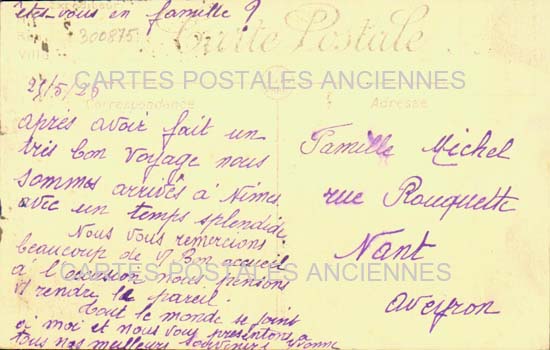 êtes-vous en famille ?
300875
Carte Postale
CARTES POSTALES ANCIENNES
25/5/25
Correspondance
Adresse
après avoir fait un
très bon voyage nous
sommes arrivés à Nîmes
avec un temps splendide
Nous vous remercions
beaucoup de v/ Bon accueil
à l'occasion nous pensons
v/ rendre le pareil.
tout le monde se joint
à moi et nous vous présentons
tous nos meilleurs souvenirs Yvonne
Famille Michel
rue Rouquette
Nant
Aveyron
CARTES POSTALES ANCIENNES